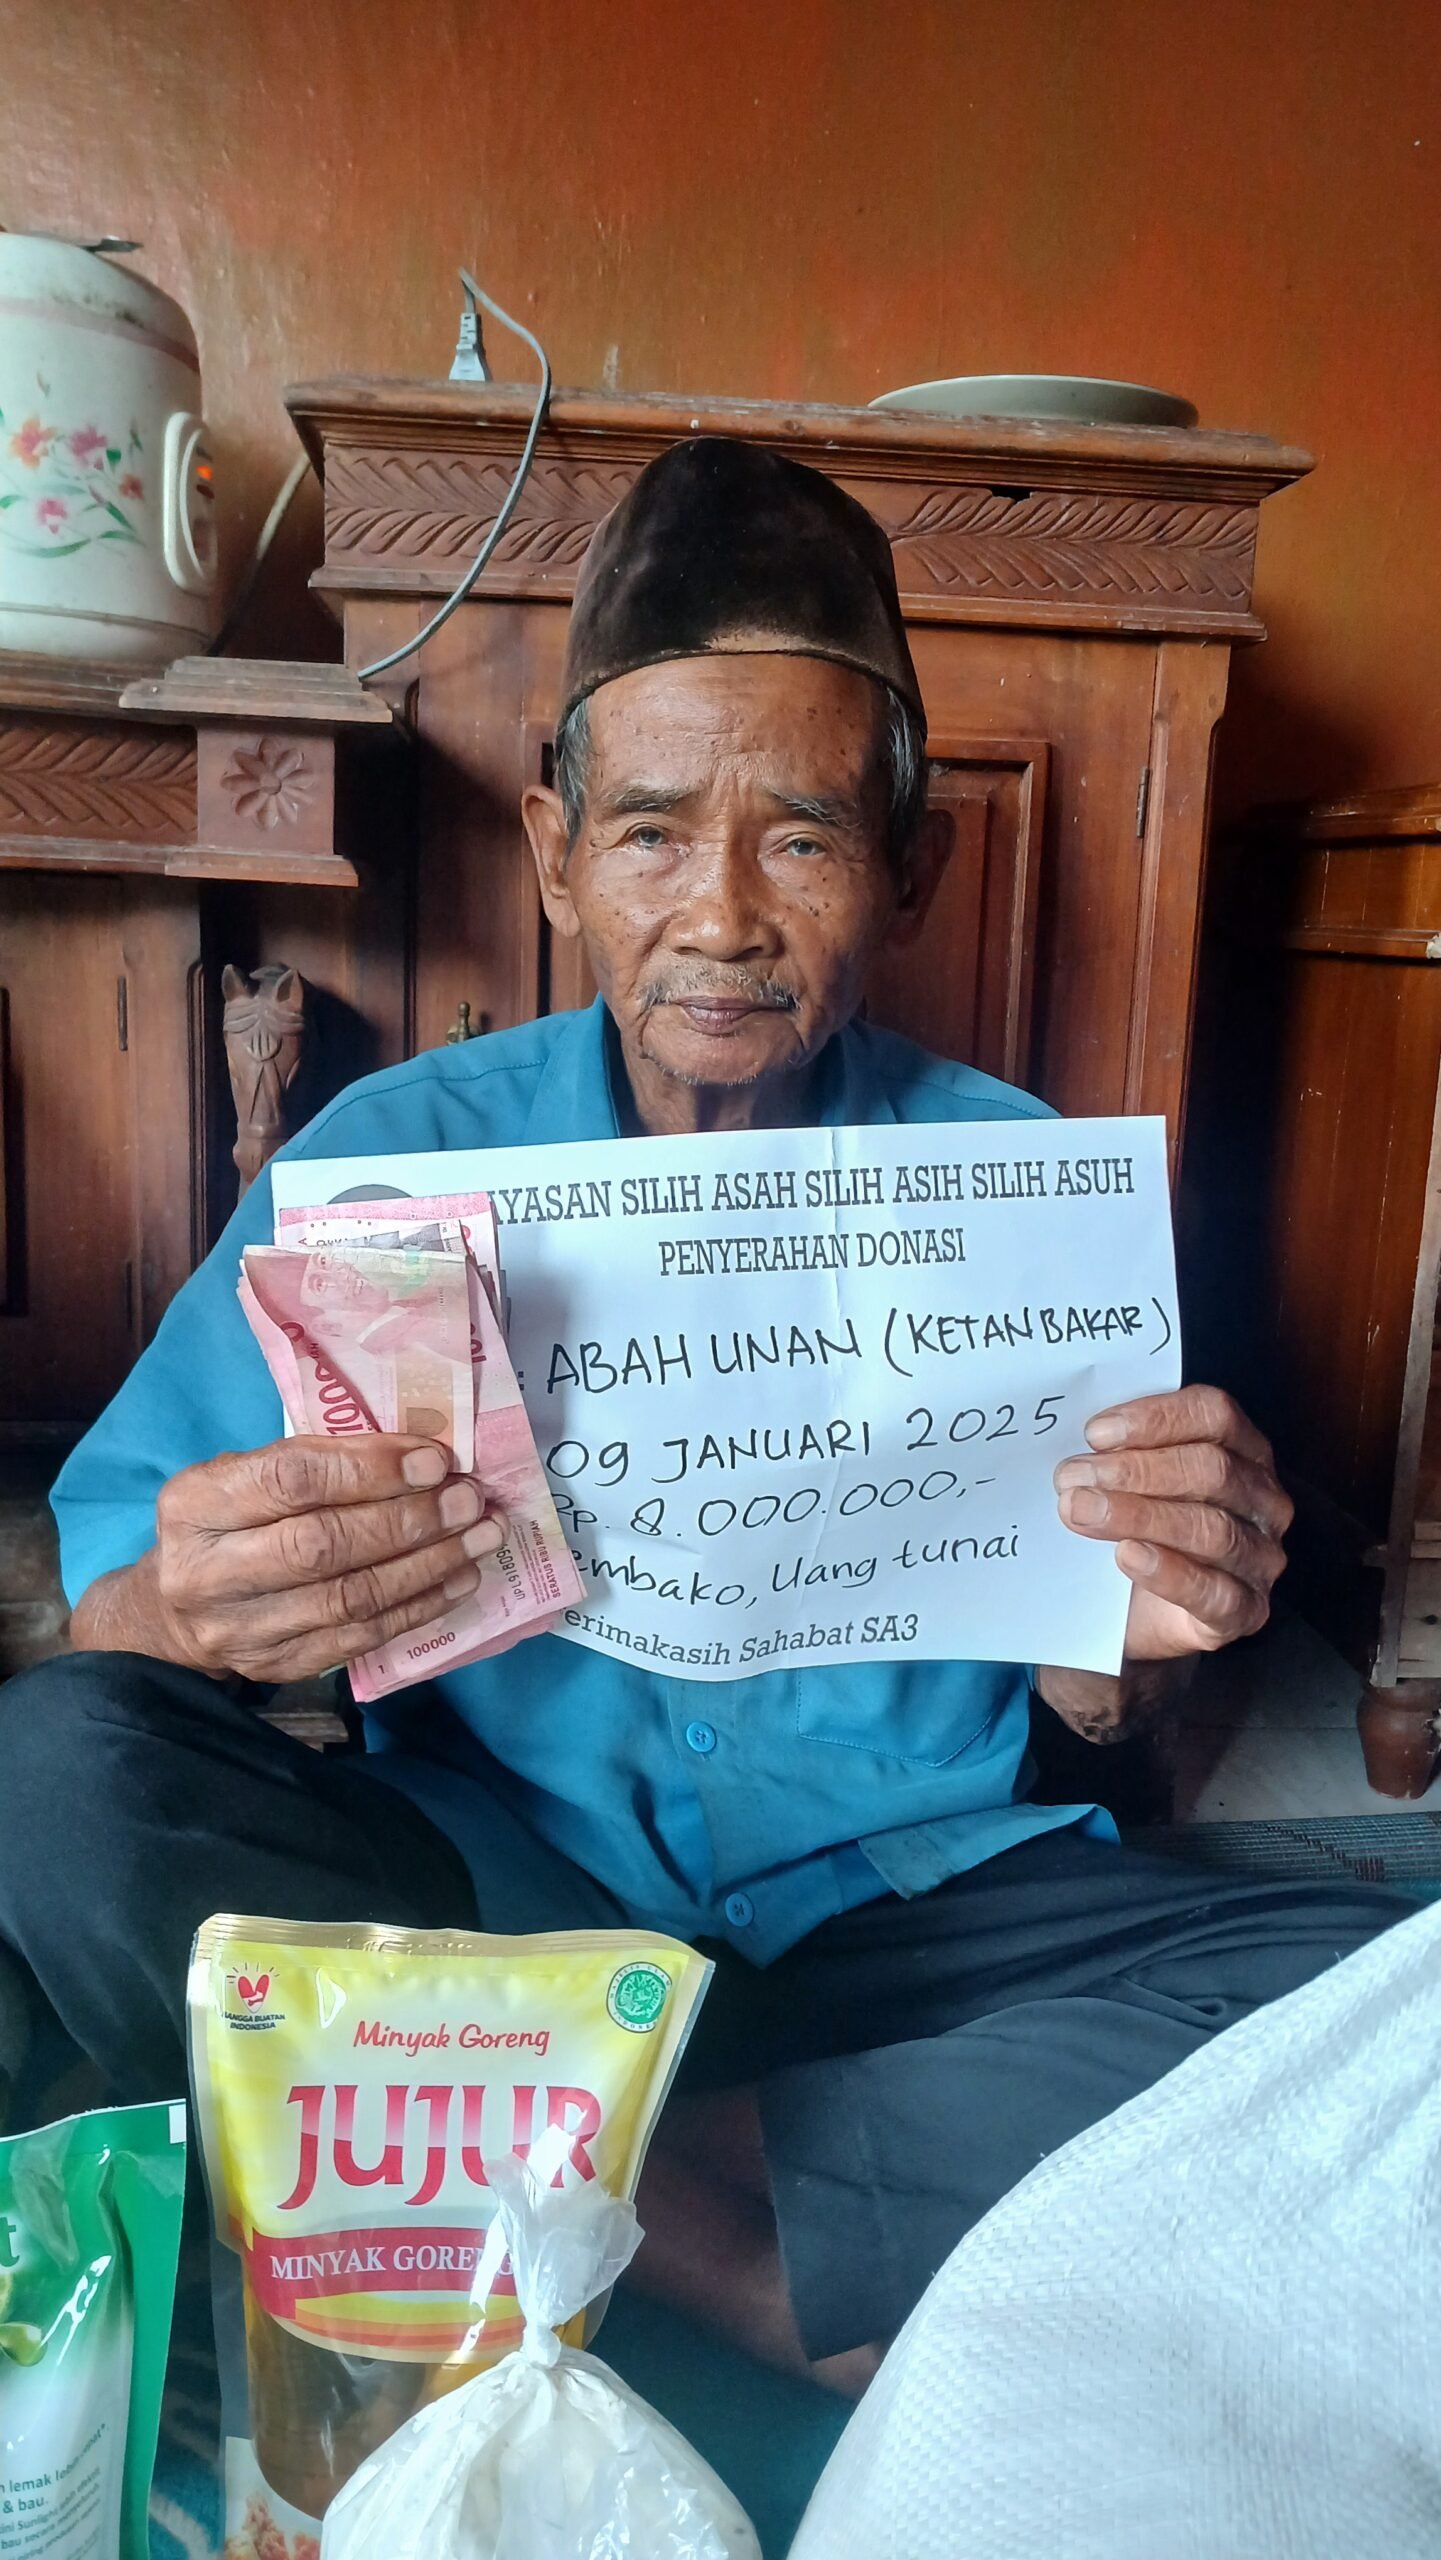 YAYASAN SILIH ASAH SILIH ASIH SILIH ASUH
PENYERAHAN DONASI
: ABAH UNAN (KETAN BAKAR)
09 JANUARI 2025
Rp. 8.000.000,-
embako, Uang tunai
erimakasih Sahabat SA3
100
SERATUS RIBU RUPIAH
1 100000
BANGGA BUATAN
INDONESIA
Minyak Goreng
JUJUR
MINYAK GORENG
lemak
& bau.
Sunlight
bau